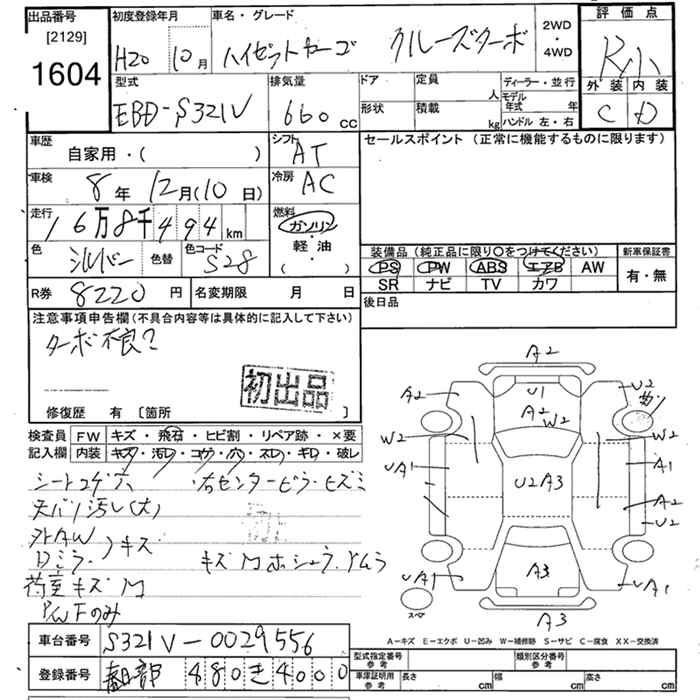 出品番号
[2129]
1604
初度登録年月
H20 10月
車名・グレード
ハイゼットカーゴ クルーズターボ
2WD
・
4WD
評価点
R小
外装 内装
C D
型式
EBD-S321V
排気量
660 cc
ドア
形状
定員
人
積載
kg
ディーラー・並行
モデル
年式 年
ハンドル 左・右
車歴
自家用・( )
シフト
AT
セールスポイント (正常に機能するものに限ります)
車検
8年 12月(10日)
冷房
AC
走行
16万8千494km
燃料
ガソリン
・
軽・油
( ・ )
色
シルバー
色替
色コード
S28
装備品 (純正品に限り〇をつけてください)
PS PW ABS エアB AW
SR ナビ TV カワ
新車保証書
有・無
R券
8220円
名変期限 月 日
後日品
注意事項申告欄(不具合内容等は具体的に記入して下さい)
ターボ不良?
初出品
修復歴 有 [箇所
検査員
記入欄
FW キズ・飛石・ヒビ割・リペア跡・×要
内装 キズ・汚レ・コゲ・穴・スレ・キレ・破レ
シートコゲ穴 ・右センターピラ・ヒズミ
天バリ汚レ(大)
外AW
Dミラ・ノキズ
荷室キズM
PWFのみ
A2
A2
U1
A2
W2
U2
W2
W2
UA1
A1
U2A3
A2
U2
UA1
A3
UA1
スペア
A3
A-キズ E-エクボ U-凹み W-補修跡 S-サビ C-腐食 XX-交換済
車台番号
S321V-0029556
登録番号
春日部 480き4000
型式指定番号
参考
類別区分番号
参考
車庫証明用
参考
長さ cm
幅 cm
高さ cm